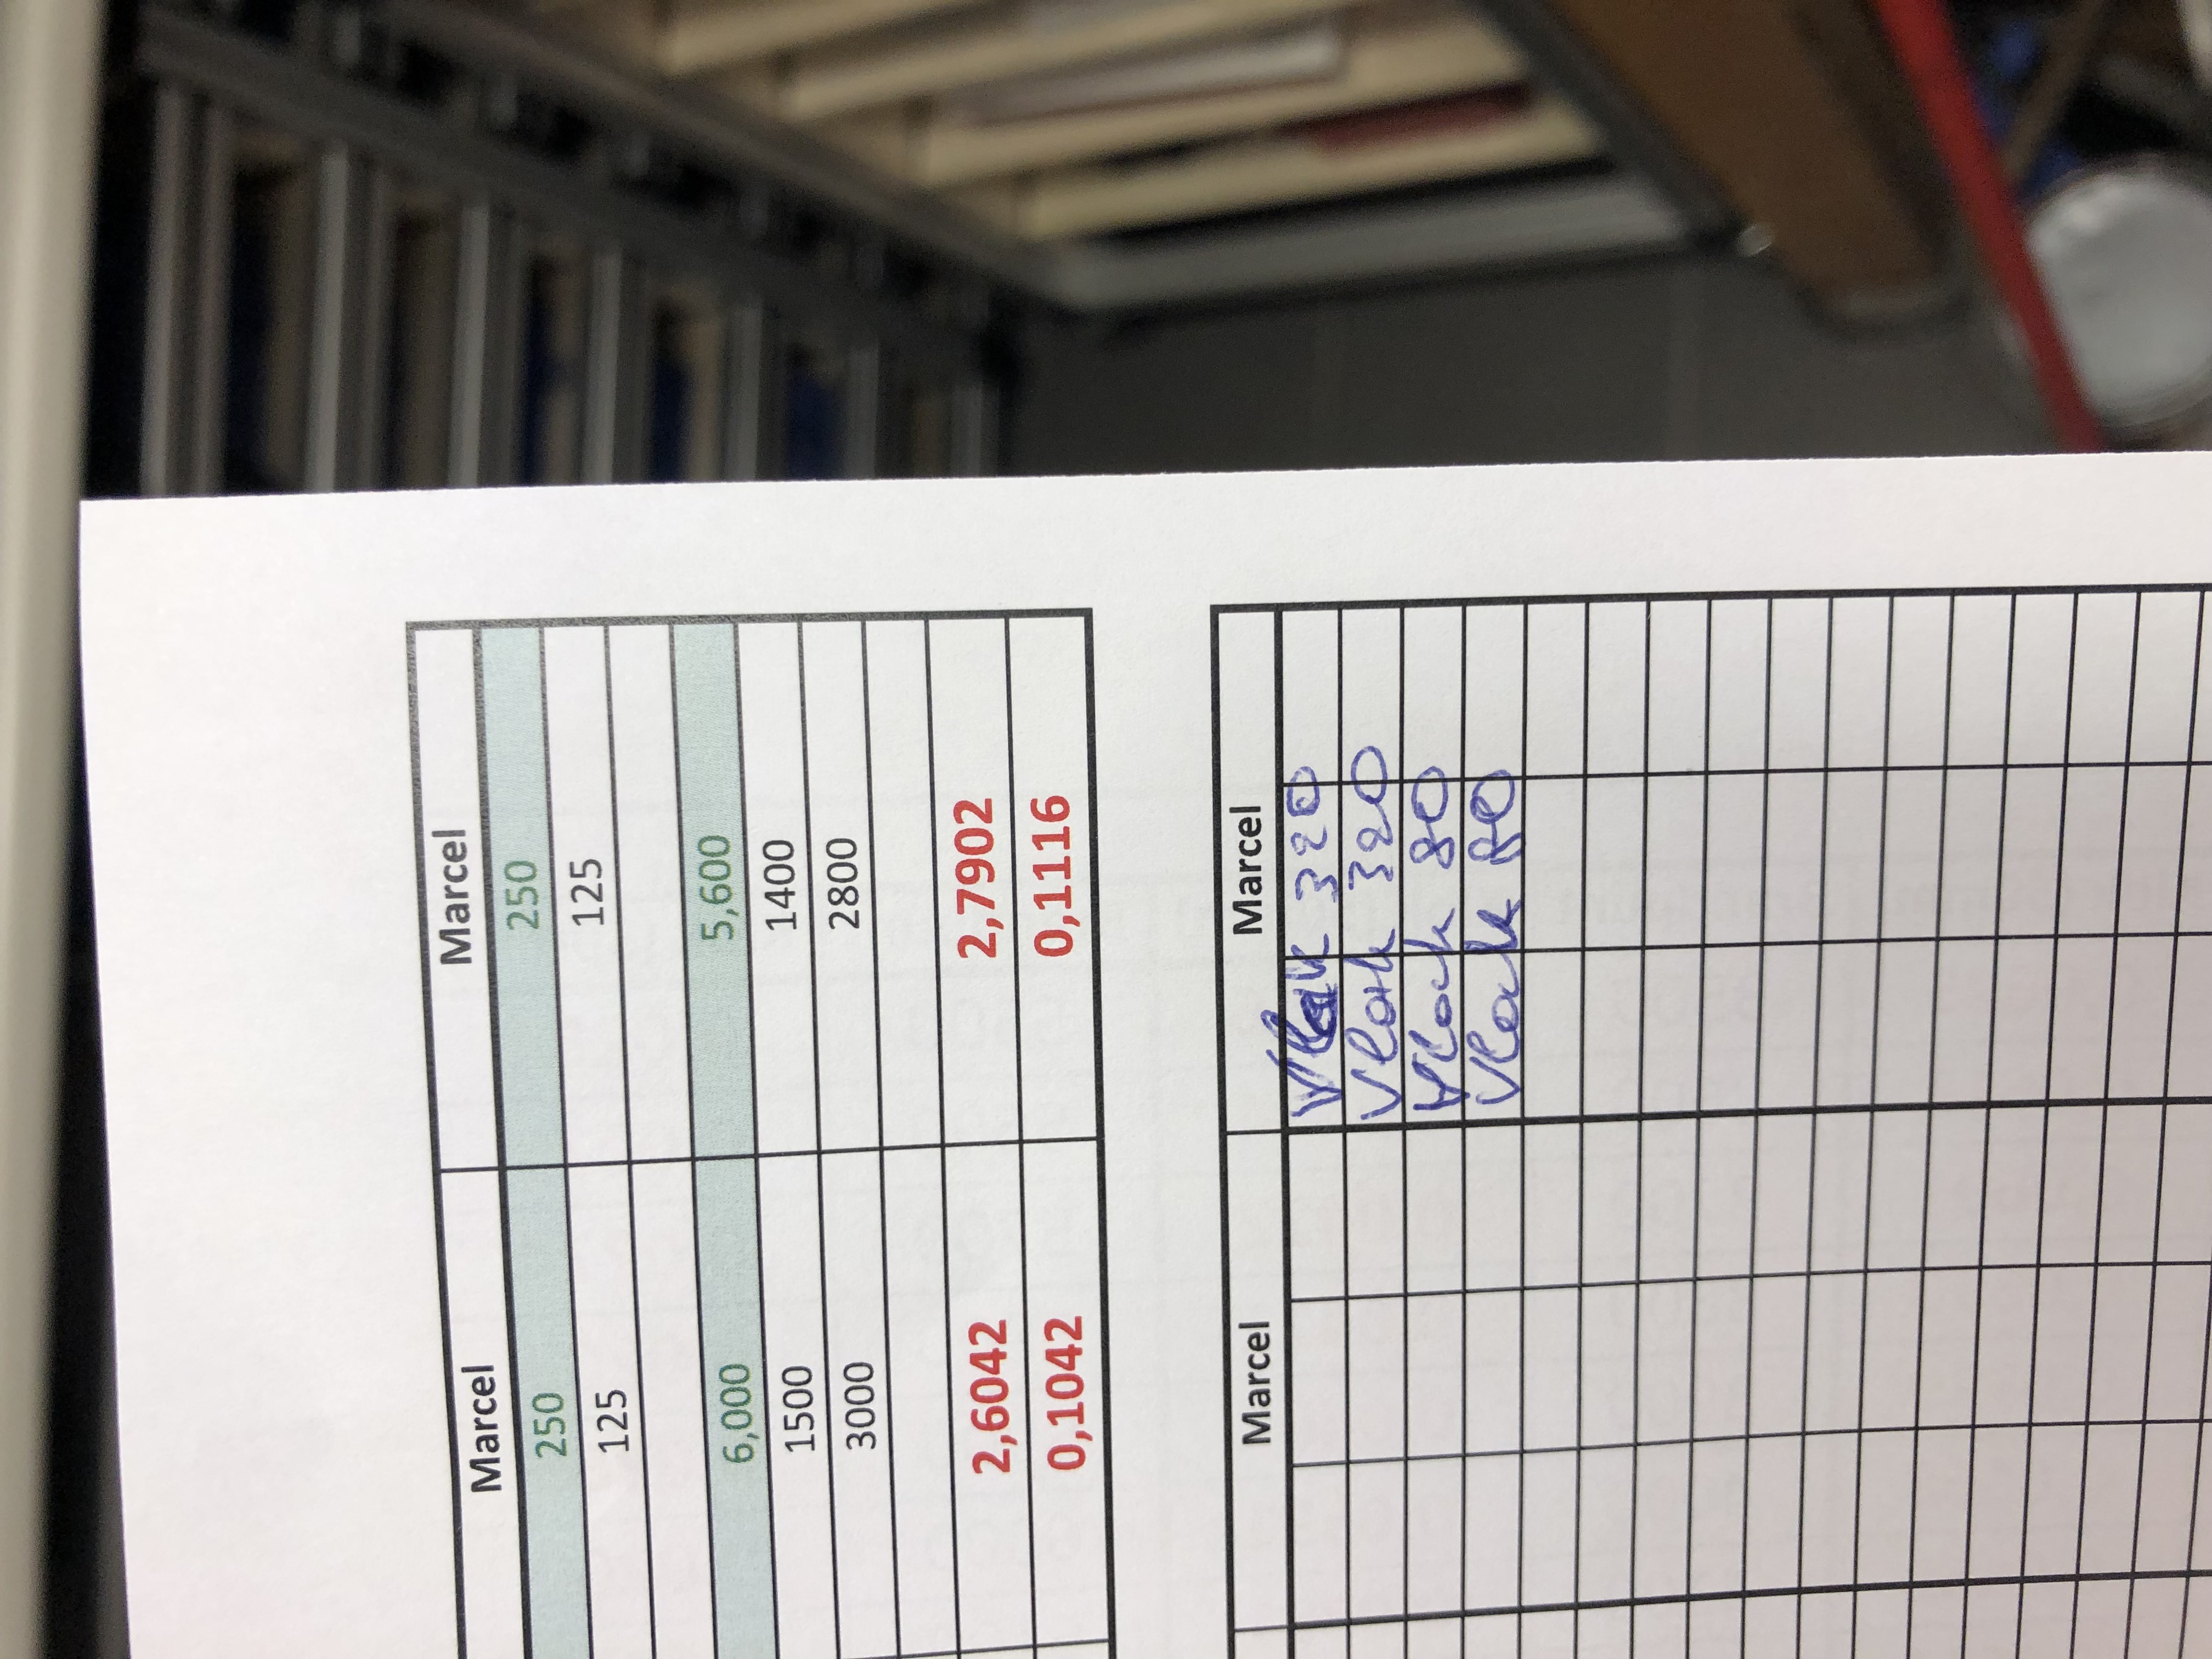 Marcel Marcel
250 250
125 125
6,000 5,600
1500 1400
3000 2800
2,6042 2,7902
0,1042 0,1116
Marcel Marcel
Vlak 320
Vlak 320
Vlock 80
Vlak 80